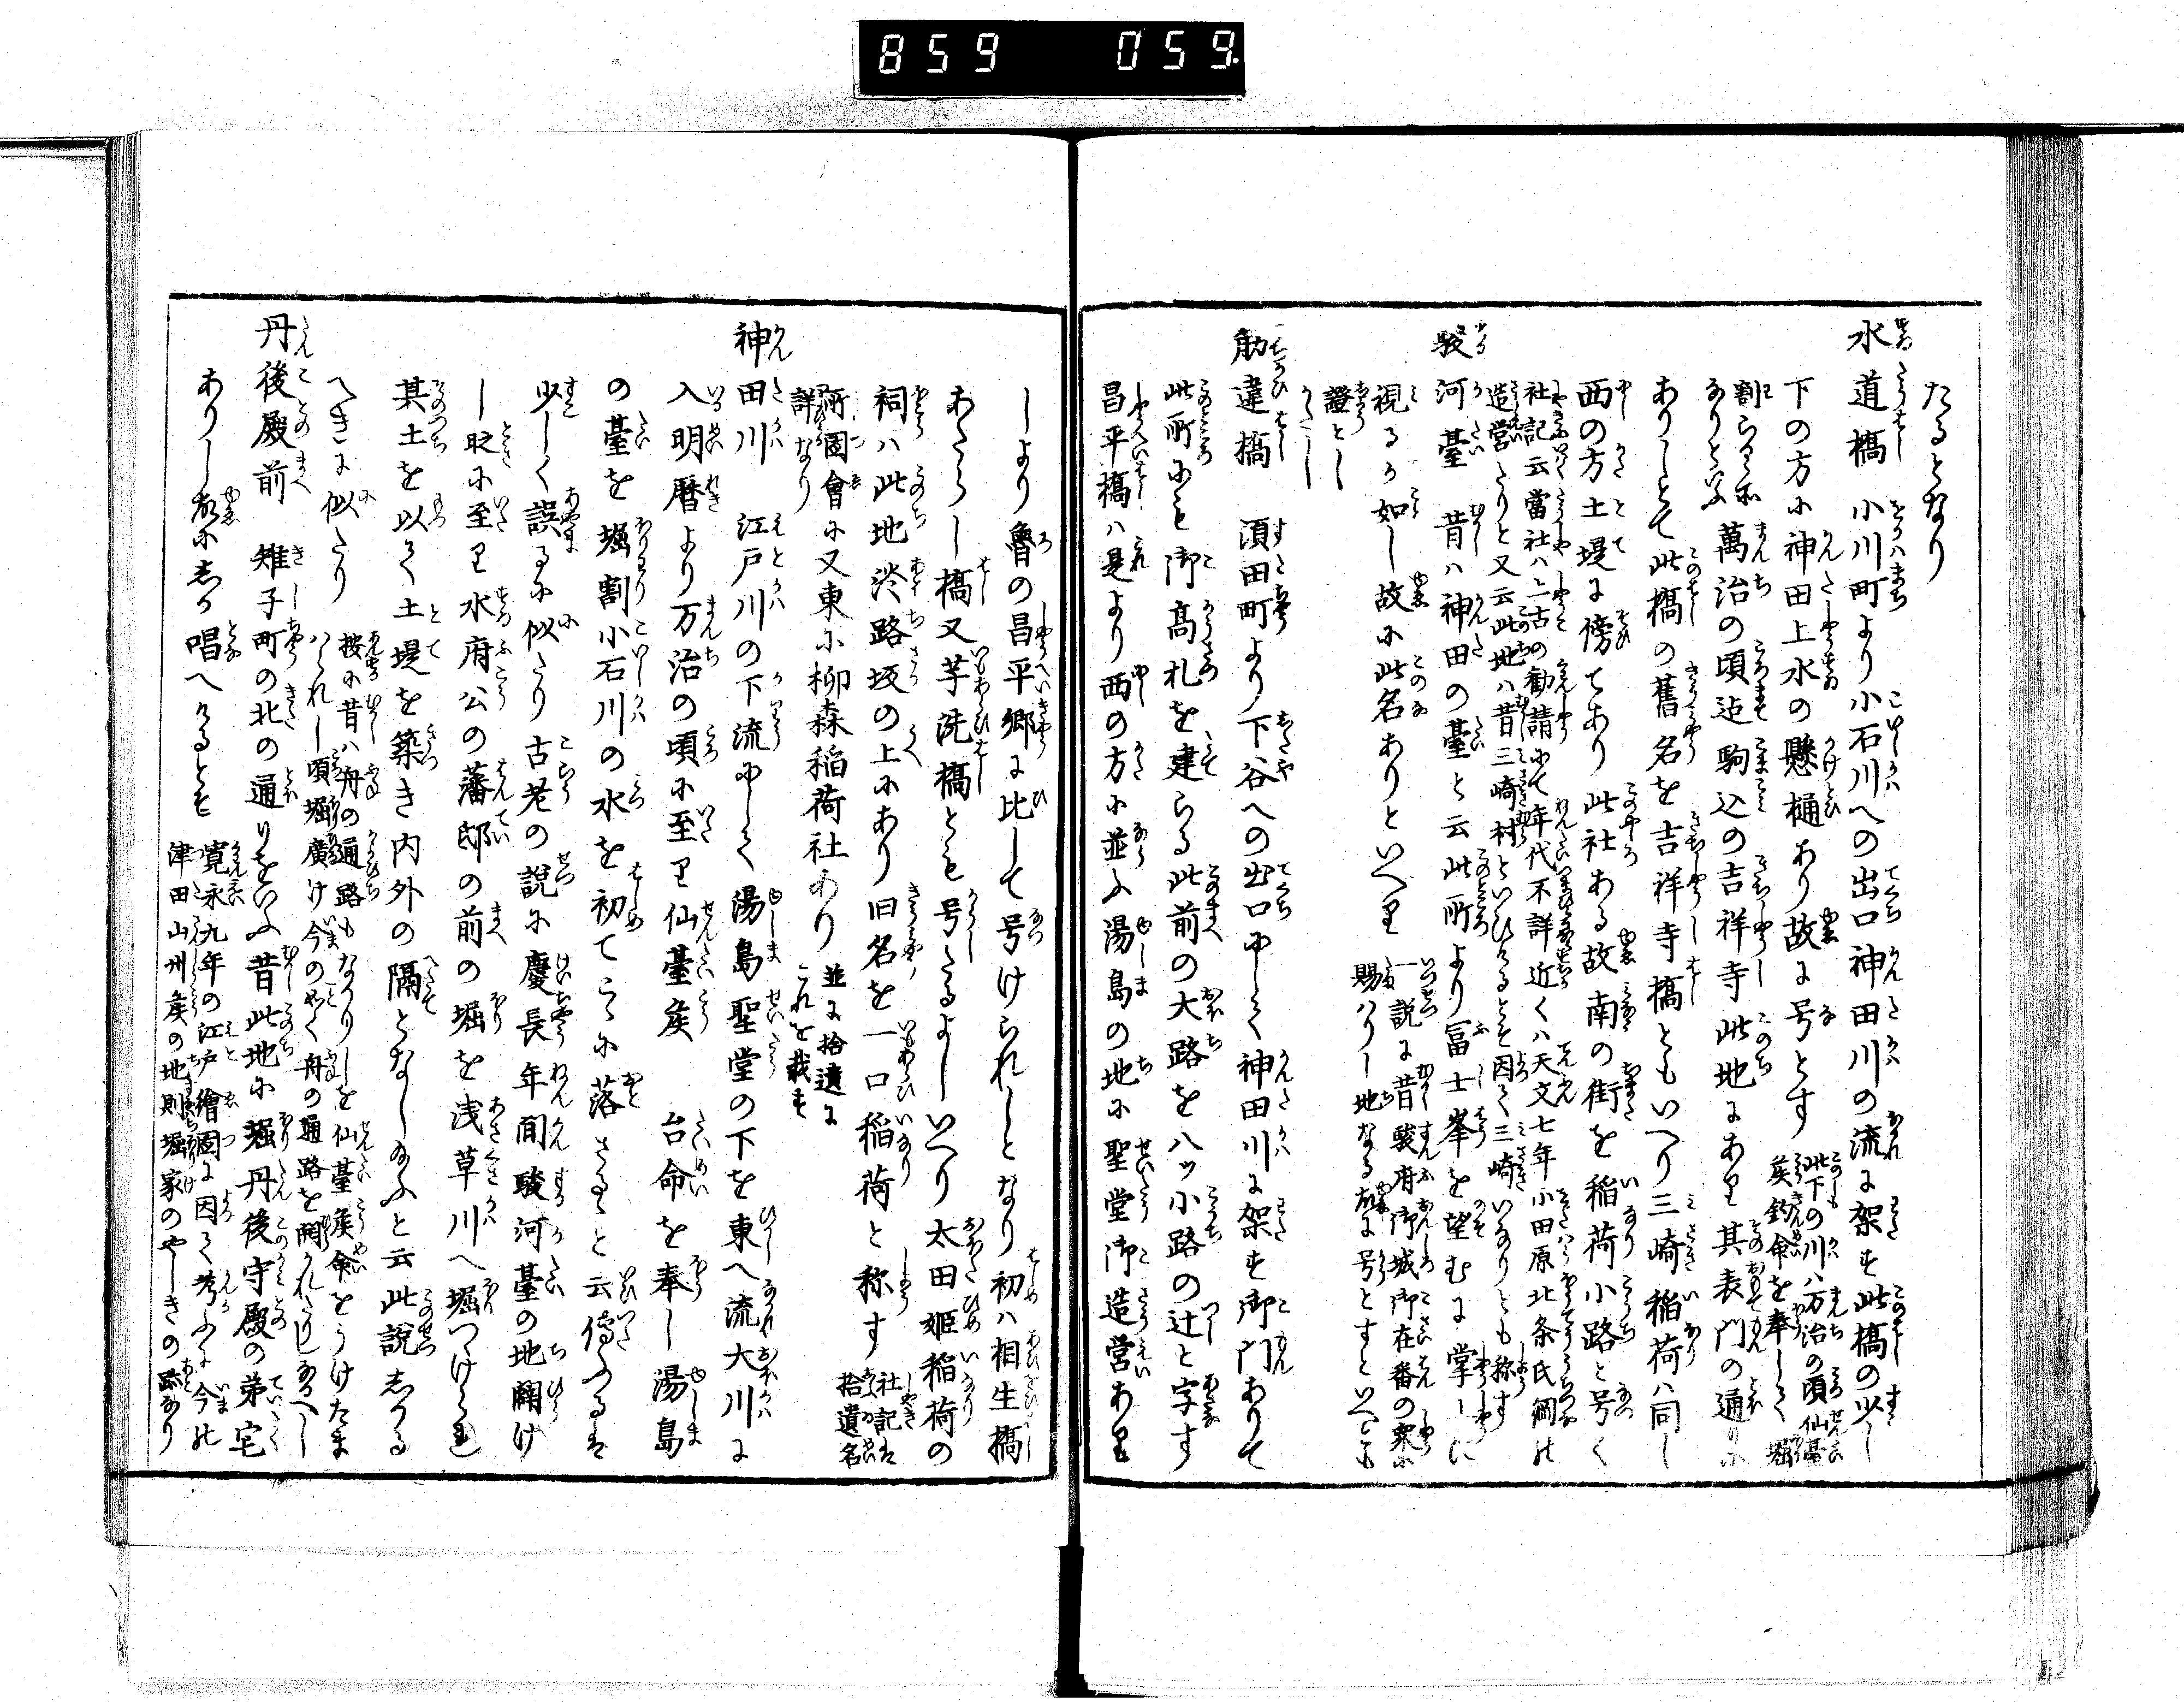 859 059.
たるとなり
水道橋 小川町より小石川への出口神田川の流に架す此橋の少し
下の方に神田上水の懸樋あり故に号とす 此下の川ハ万治の頃仙臺
侯鈞命を奉して堀
割らるゝ所
なりといふ 萬治の頃迄駒込の吉祥寺此地にあり其表門の通りに
ありしとて此橋の舊名を吉祥寺橋ともいへり三崎稲荷ハ同し
西の方土堤に傍てあり此社ある故南の街を稲荷小路と号く
社記云當社ハ上古の勧請にて年代不詳近くハ天文七年小田原北条氏綱の
造営たりと又云此地ハ昔三崎村といひけるとそ因て三崎いなりとも称す
駿河臺 昔ハ神田の臺と云此所より冨士峯を望むに掌上に
視るか如し故に此名ありといへり 一説に昔駿府御城御在番の衆に
賜ハりし地なる故に号とすといへとも
證とし
かたし
筋違橋 須田町より下谷への出口にして神田川に架す御門ありて
此所にも御高札を建らる此前の大路を八ッ小路の辻と字す
昌平橋ハ是より西の方に並ふ湯島の地に聖堂御造営あり
しより魯の昌平郷に比して号けられしとなり初ハ相生橋
あたらし橋又芋洗橋とも号したるよしいへり太田姫稲荷の
祠ハ此地淡路坂の上にあり旧名を一口稲荷と称す 社記は
拾遺名
所圖會に
詳なり 又東に柳森稲荷社あり 並に拾遺に
これを載す
神田川 江戸川の下流にして湯島聖堂の下を東へ流大川に
入明暦より万治の頃に至り仙臺侯 台命を奉し湯島
の臺を堀割小石川の水を初てこゝに落さるゝと云傳ふるは
少しく誤るに似たり古老の說に慶長年間駿河臺の地闢け
し時に至り水府公の藩邸の前の堀を浅草川へ堀つけられ
其土を以て土堤を築き内外の隔となし給ふと云此説しかる
へきに似たり 按に昔ハ舟の通路もなかりしを仙臺侯命をうけたま
ハられし頃堀廣け今のことく舟の通路を開かれたりしなるへし
丹後殿前 雉子町の北の通りをいふ昔此地に堀丹後守殿の第宅
ありし故にしか唱へけるとそ 寛永九年の江戸繪圖に因て考ふるに今の
津田山州侯の地則堀家のやしきの跡なり